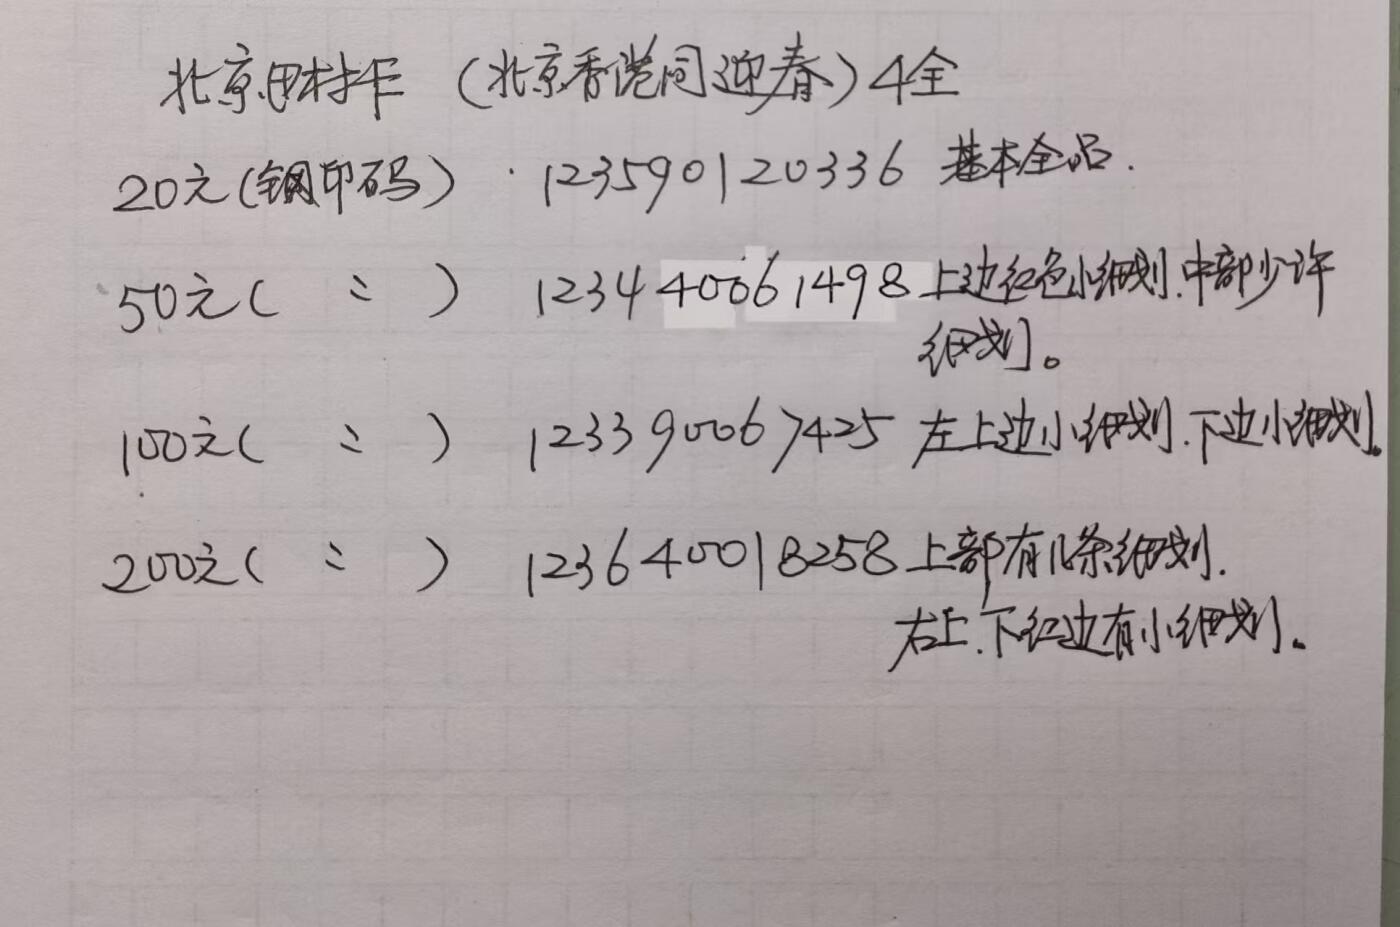 北京田村卡 (北京香港同迎春) 4全
20元(钢印码) 123590120336 基本全品.
50元( 〃 ) 123440061498 上边红色小细划.中部少许
细划。
100元( 〃 ) 123390067425 左上边小细划.下边小细划。
200元( 〃 ) 123640018258 上部有几条细划.
右上.下红边有小细划。